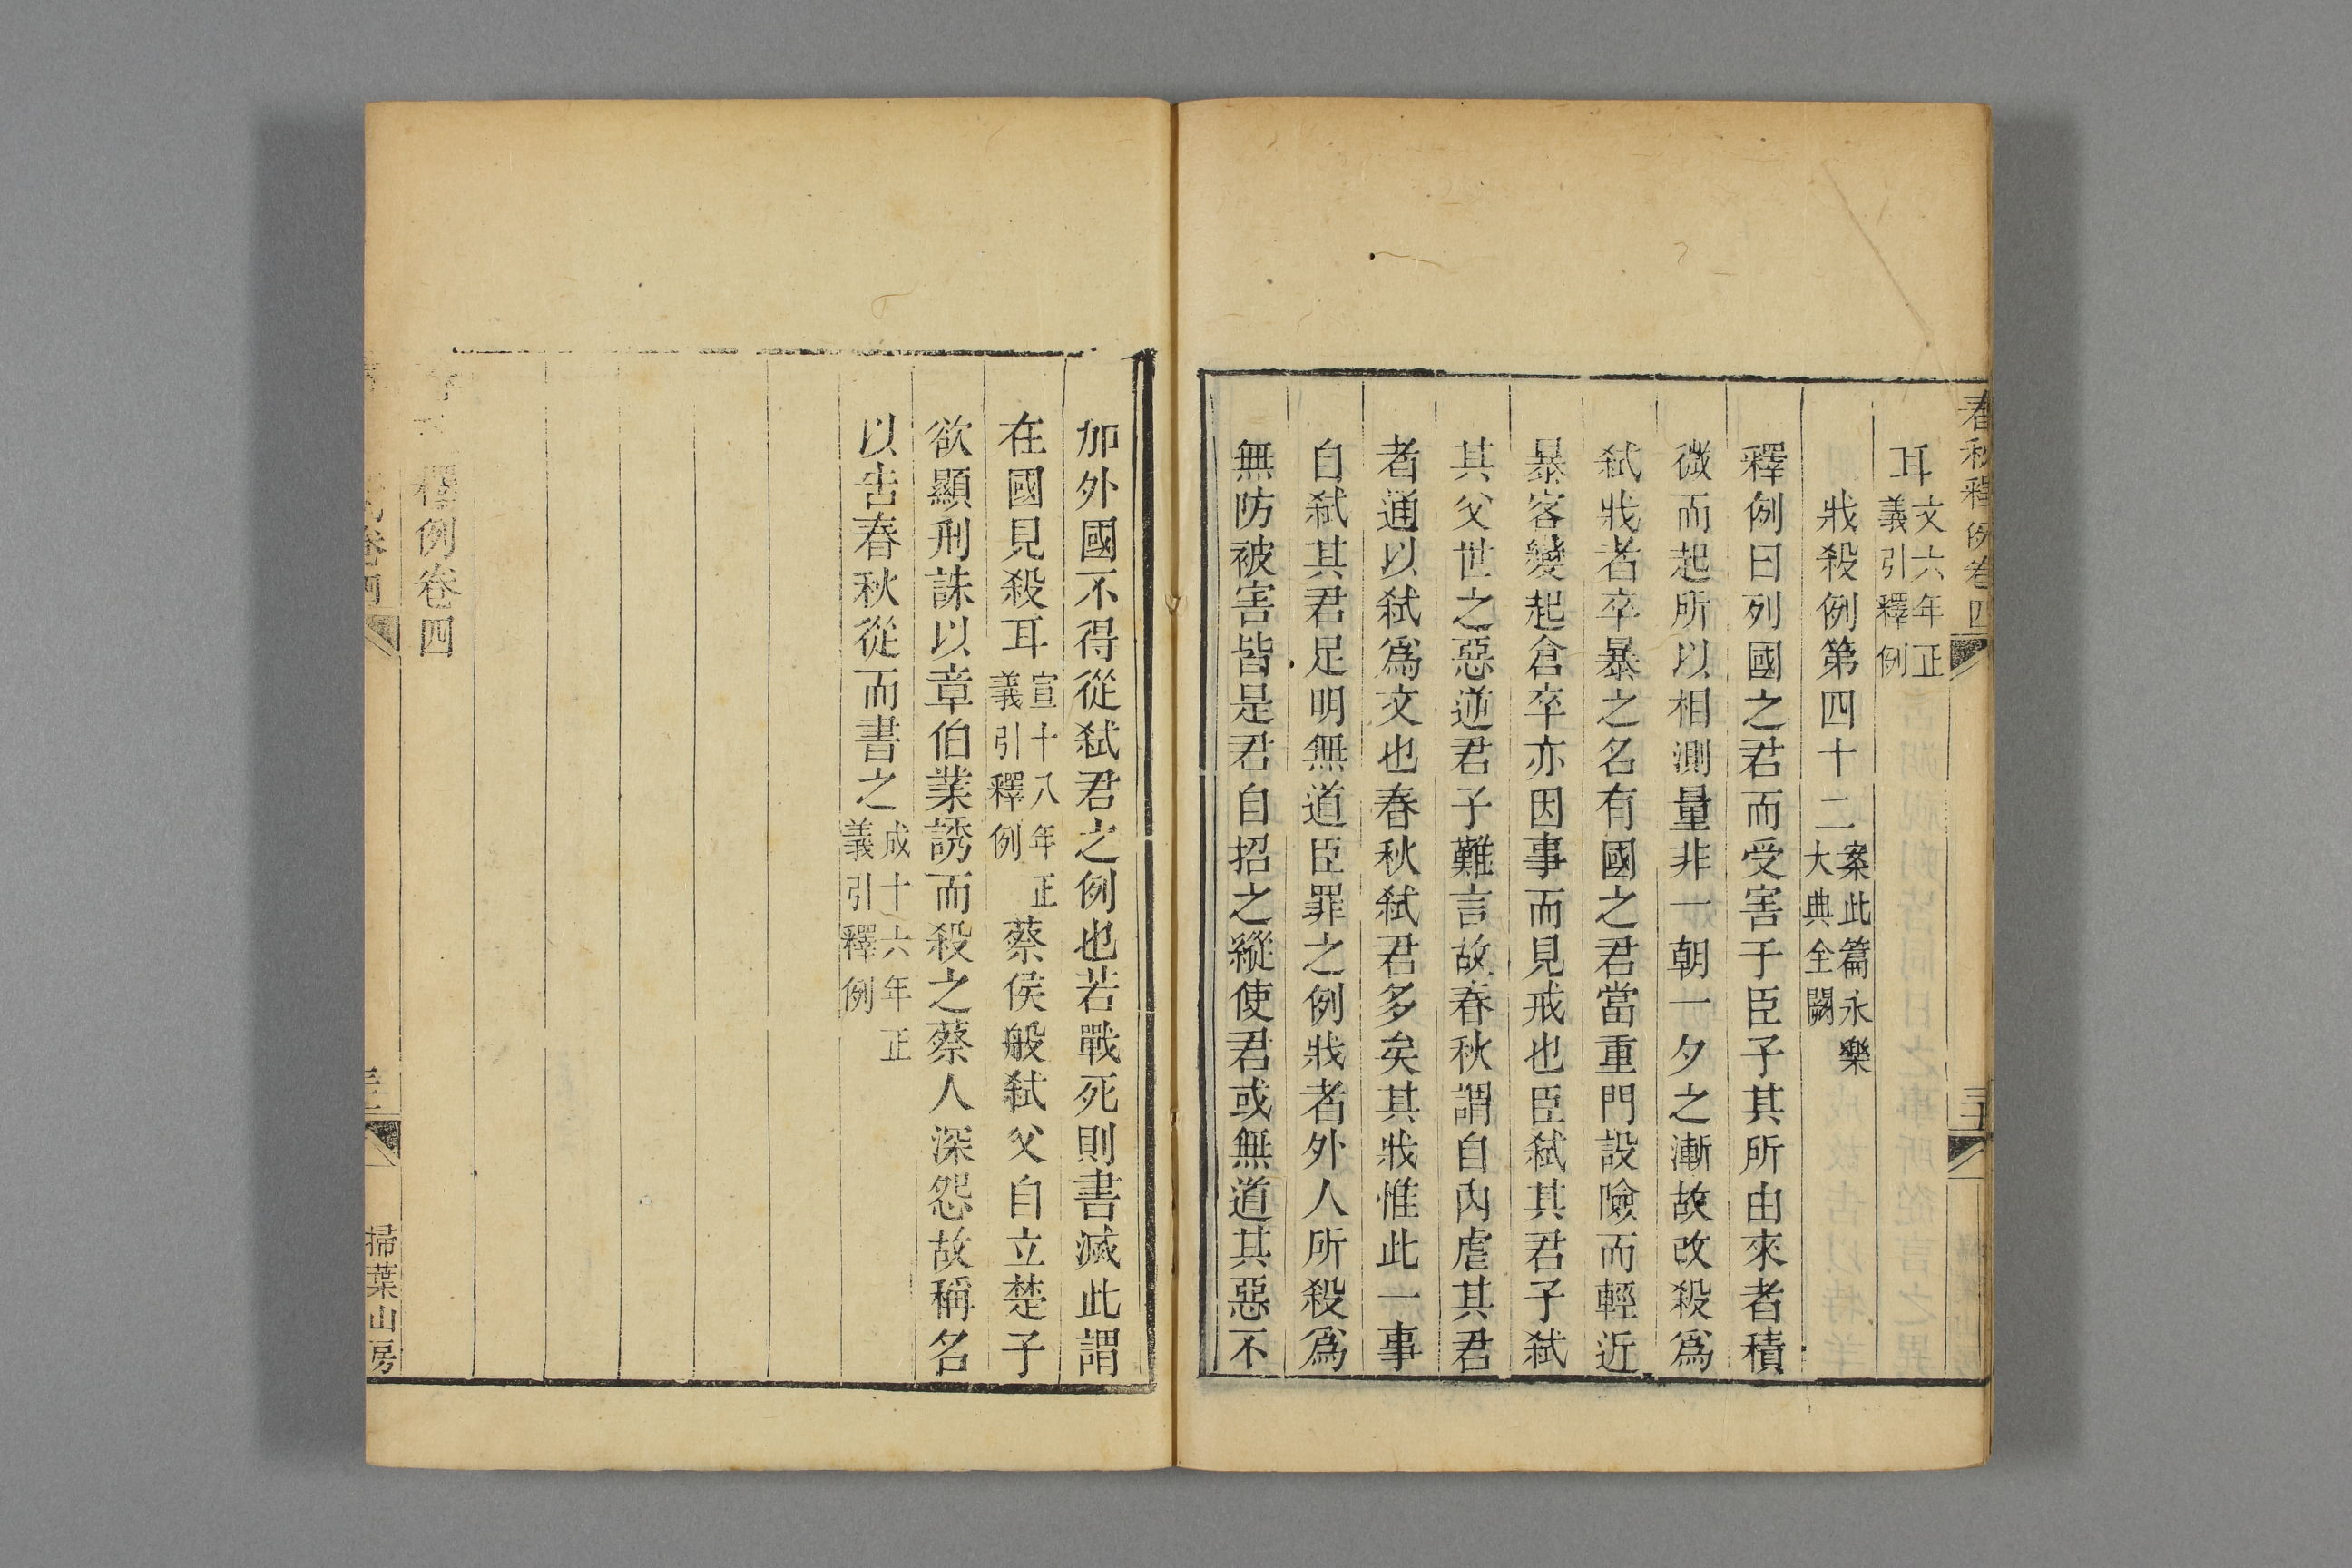 春秋釋例卷四
耳文六年正義引釋例
戕殺例第四十二案此篇永樂大典全闕
釋例曰列國之君而受害于臣子其所由來者積
微而起所以相測量非一朝一夕之漸故改殺爲
弒戕者卒暴之名有國之君當重門設險而輕近
暴客變起倉卒亦因事而見戒也臣弒其君子弒
其父世之惡逆君子難言故春秋謂自內虐其君
者通以弒爲文也春秋弒君多矣其戕惟此一事
自弒其君足明無道臣罪之例戕者外人所殺爲
無防被害皆是君自招之縱使君或無道其惡不
加外國不得從弒君之例也若戰死則書滅此謂
在國見殺耳宣十八年正義引釋例蔡侯般弒父自立楚子
欲顯刑誅以章伯業誘而殺之蔡人深怨故稱名
以告春秋從而書之成十六年正義引釋例
釋例卷四
掃葉山房